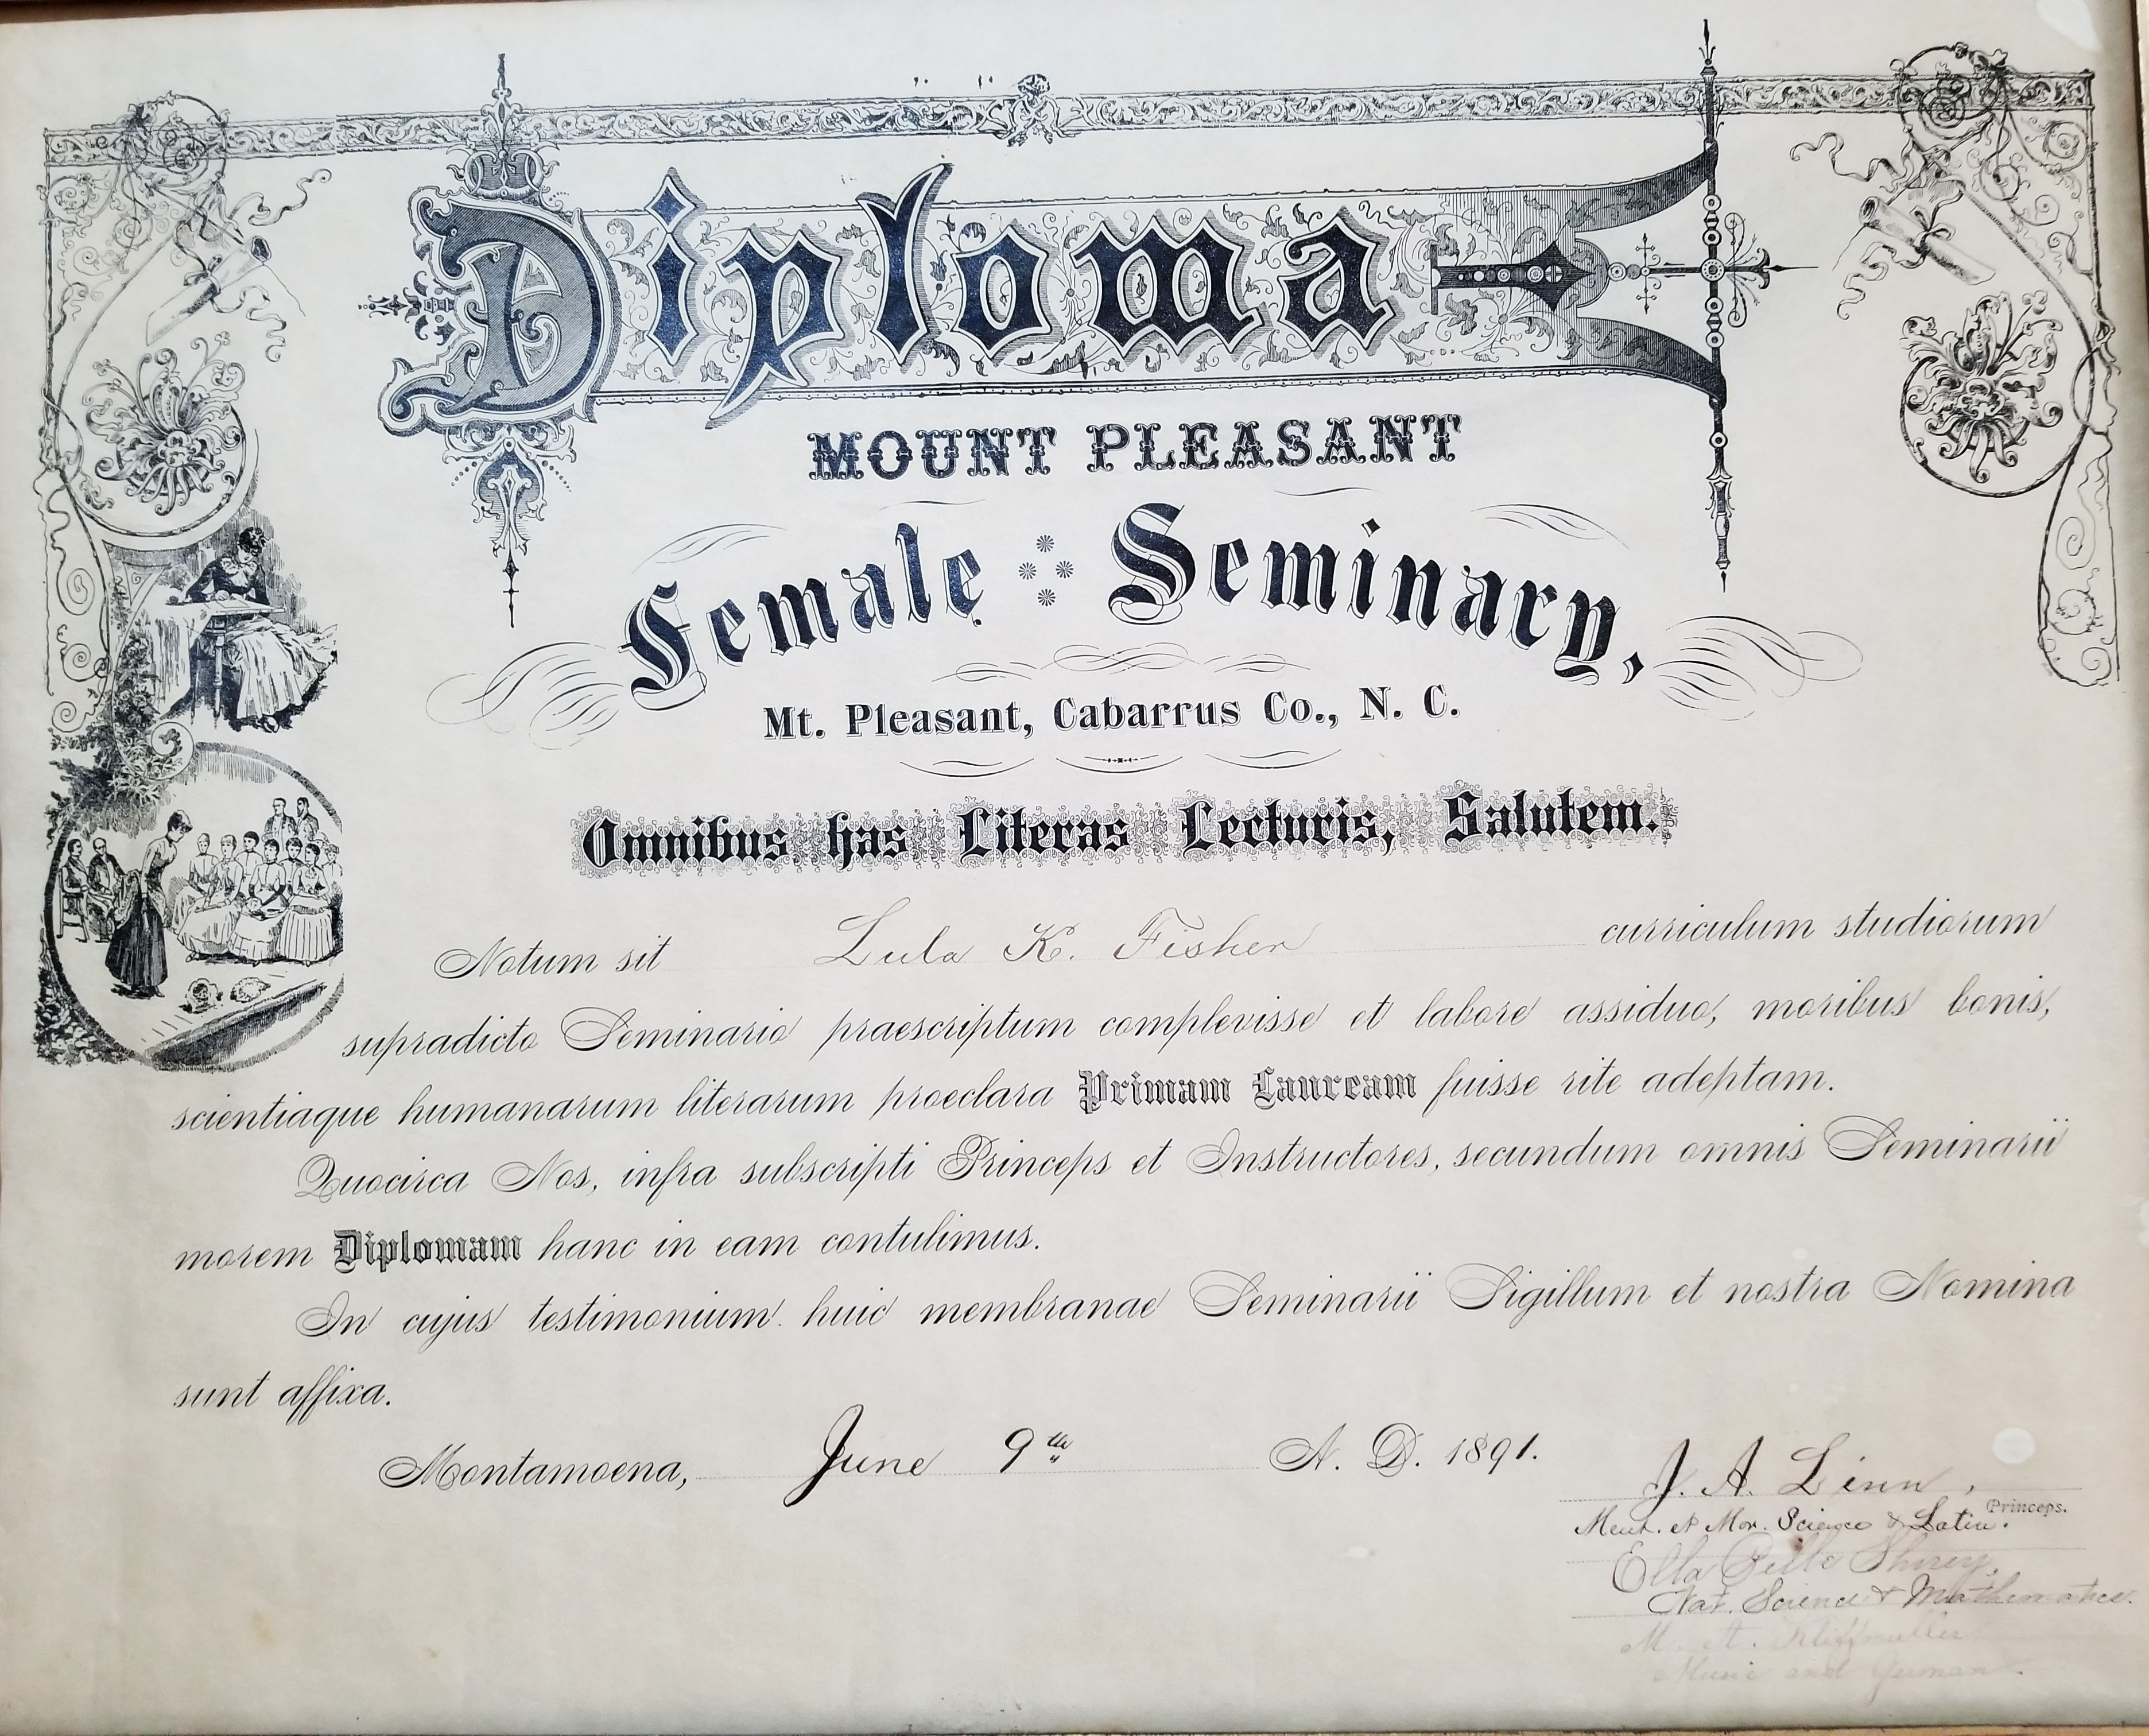 Diploma
MOUNT PLEASANT
Female Seminary,
Mt. Pleasant, Cabarrus Co., N. C.
Omnibus has Literas Lecturis, Salutem.
Notum sit Lula K. Fisher curriculum studiorum
supradicto Seminario praescriptum complevisse et labore assiduo, moribus bonis,
scientiaque humanarum literarum proeclara Primam Lauream fuisse rite adeptam.
Quocirca Nos, infra subscripti Princeps et Instructores, secundum omnis Seminarii
morem Diplomam hanc in eam contulimus.
In cujus testimonium huic membranae Seminarii Sigillum et nostra Nomina
sunt affixa.
Montamoena, June 9th A. D. 1891.
J. A. Linn,
Princeps.
Ment. et Mor. Science & Latin.
Ella Belle Shirey,
Nat. Science & Mathematics.
M. A.
Music and German.